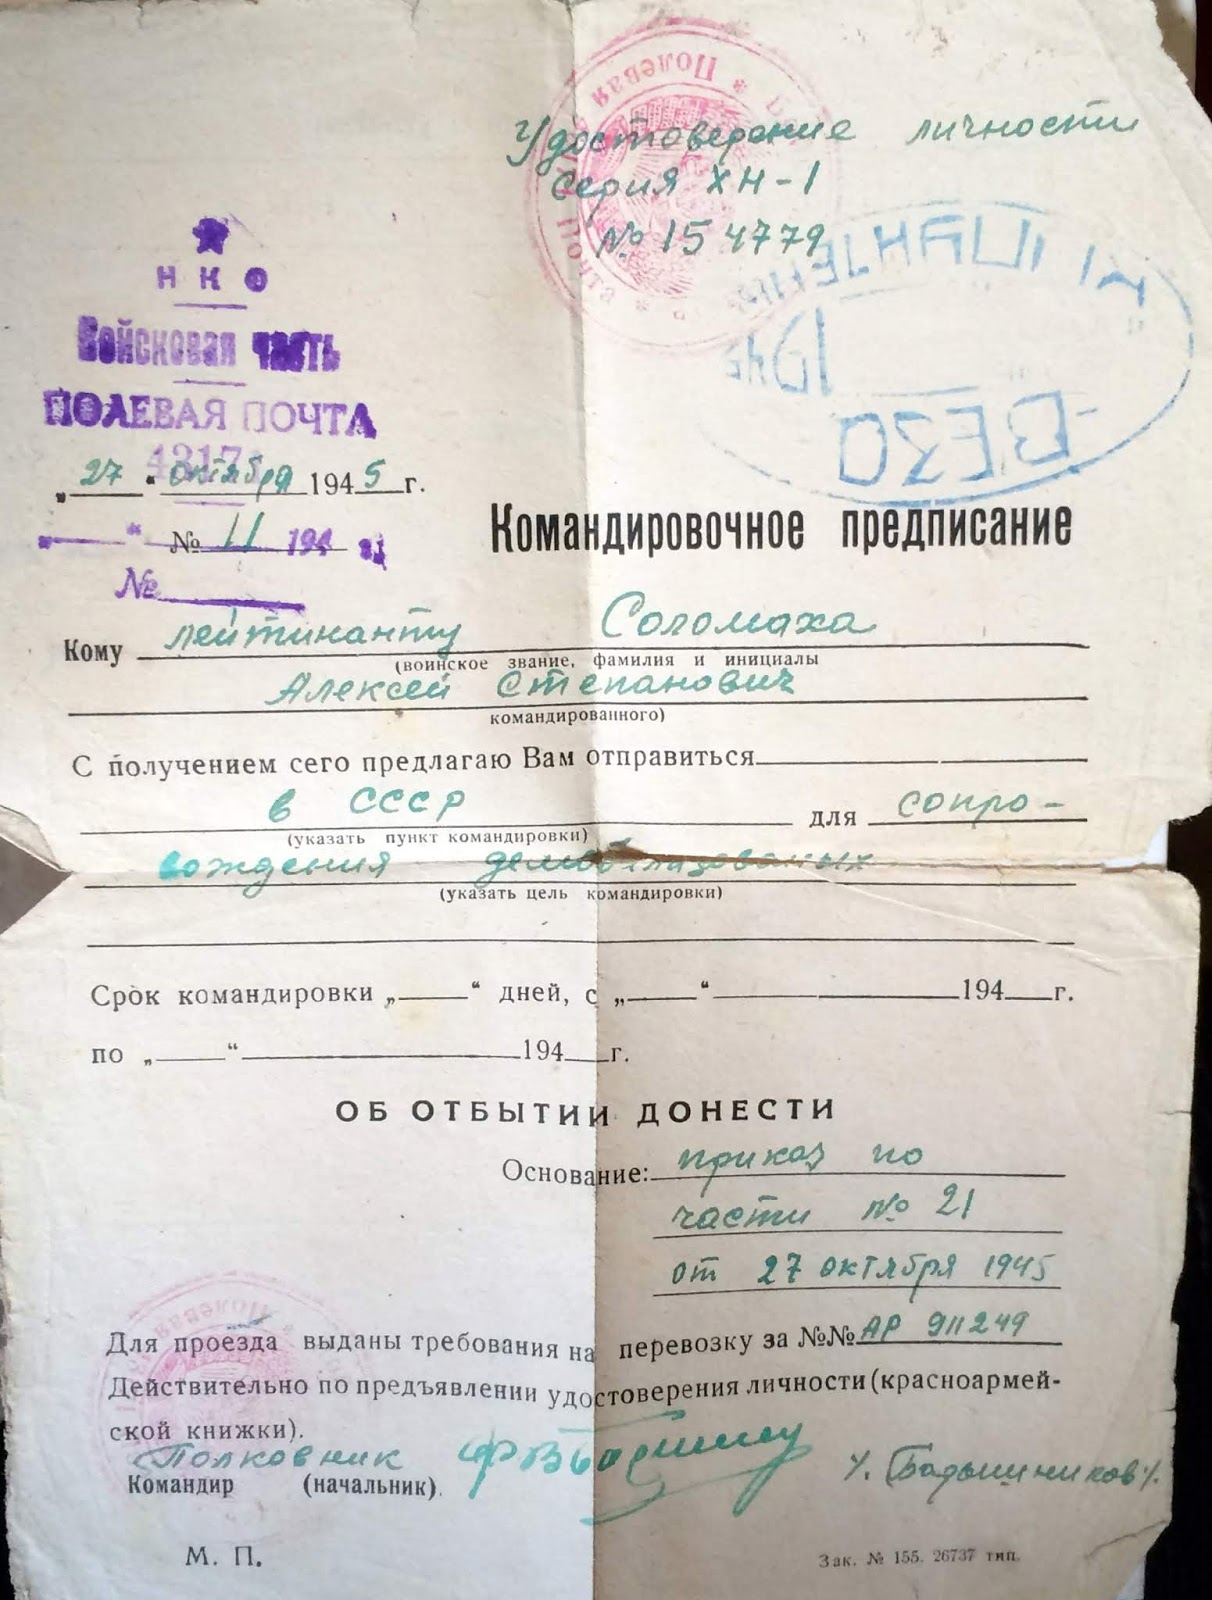 Удостоверение личности
Серия ХН-1
№ 154779
Полевая
Почта
НКО
Войсковая часть
ПОЛЕВАЯ ПОЧТА
„27“ октября 1945 г.
№ 11 194
№
Командировочное предписание
Кому лейтинанту Соломаха
(воинское звание, фамилия и инициалы
Алексей Степанович
командированного)
С получением сего предлагаю Вам отправиться
в СССР для сопро-
(указать пункт командировки)
вождения демобилизованых
(указать цель командировки)
Срок командировки „ “ дней, с „ “ 194 г.
по „ “ 194 г.
ОБ ОТБЫТИИ ДОНЕСТИ
Основание: приказ по
части № 21
от 27 октября 1945
Полевая
Для проезда выданы требования на перевозку за №№ АР 911249
Действительно по предъявлении удостоверения личности (красноармей-
ской книжки).
Полковник
Командир (начальник).
М. П.
Зак. № 155. 26737 тип.